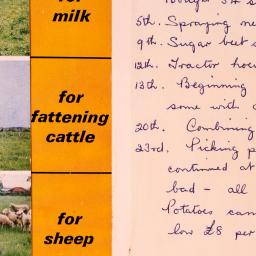 for
milk
for
fattening
cattle
for
sheep
5th. Spraying
9th. Sugar beet
12th. Tractor
13th. Beginning
some with
20th. Combining
23rd. Picking
continued at
bad – all
Potatoes
low £8 per